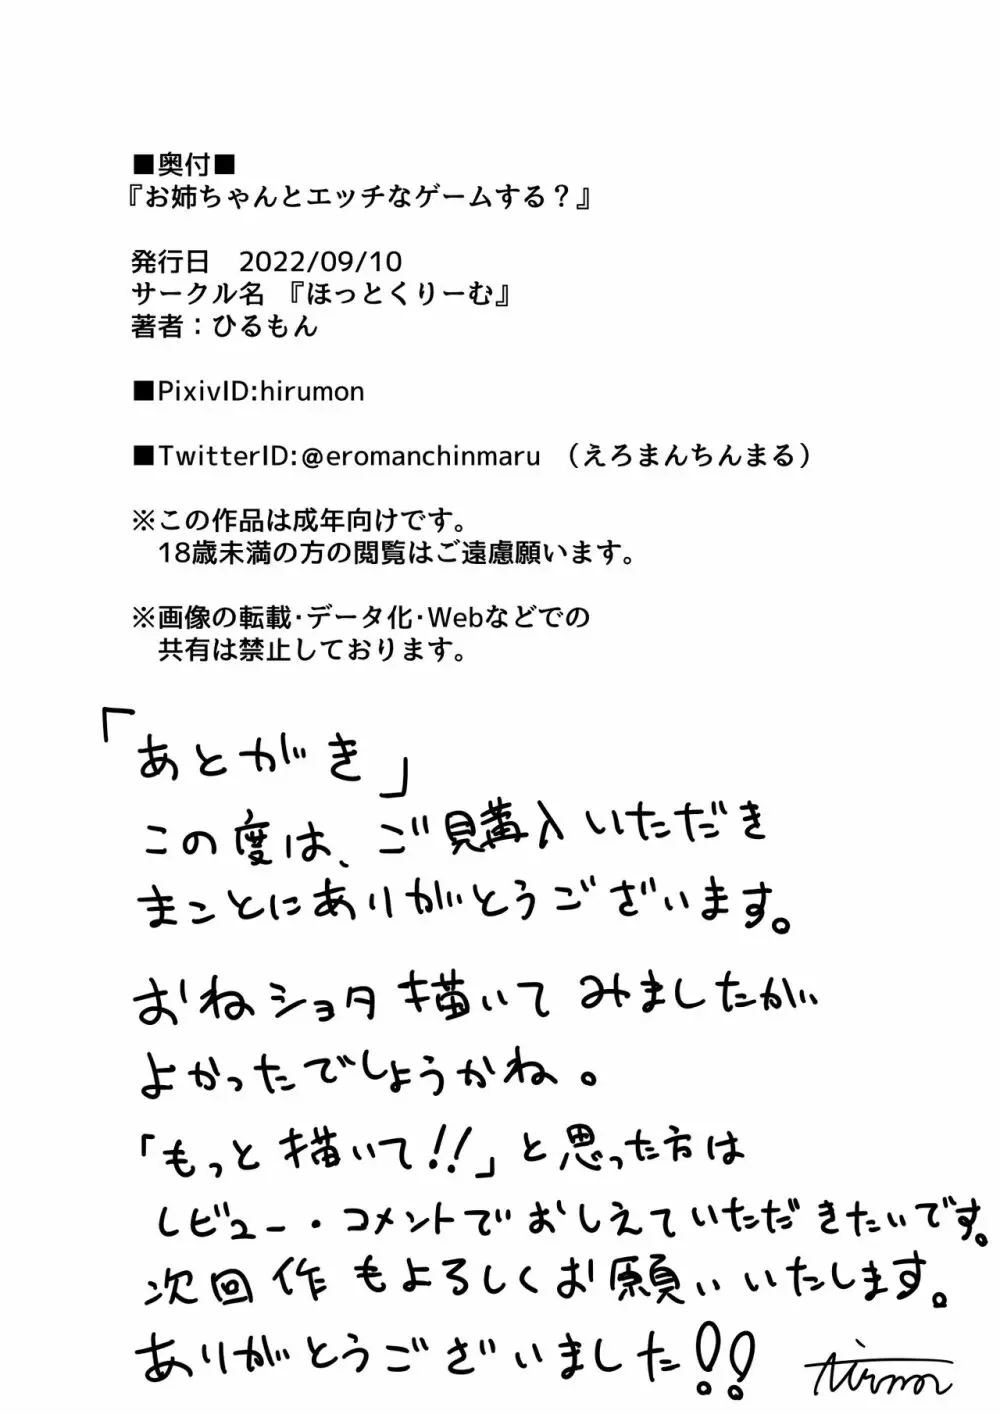 ■奥付■
『お姉ちゃんとエッチなゲームする？』
発行日　2022/09/10
サークル名　『ほっとくりーむ』
著者：ひるもん
■PixivID:hirumon
■TwitterID:@eromanchinmaru　（えろまんちんまる）
※この作品は成年向けです。
18歳未満の方の閲覧はご遠慮願います。
※画像の転載･データ化･Webなどでの
共有は禁止しております。
「あとがき」
この度は、ご購入いただき
まことにありがとうございます。
おねショタ描いてみましたが
よかったでしょうかね。
「もっと描いて!!」と思った方は
レビュー・コメントでおしえていただきたいです。
次回作もよろしくお願いいたします。
ありがとうございました!!